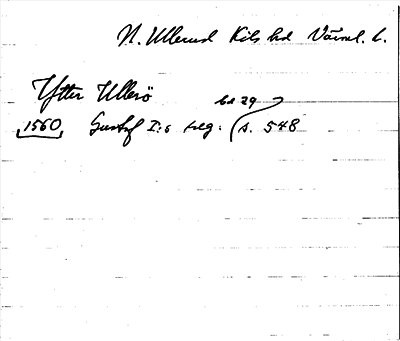 N. Ullerud Kils hd Värml. l.
Ytter Ullerö
bd 29
1560 Gustaf I:s reg: s. 548